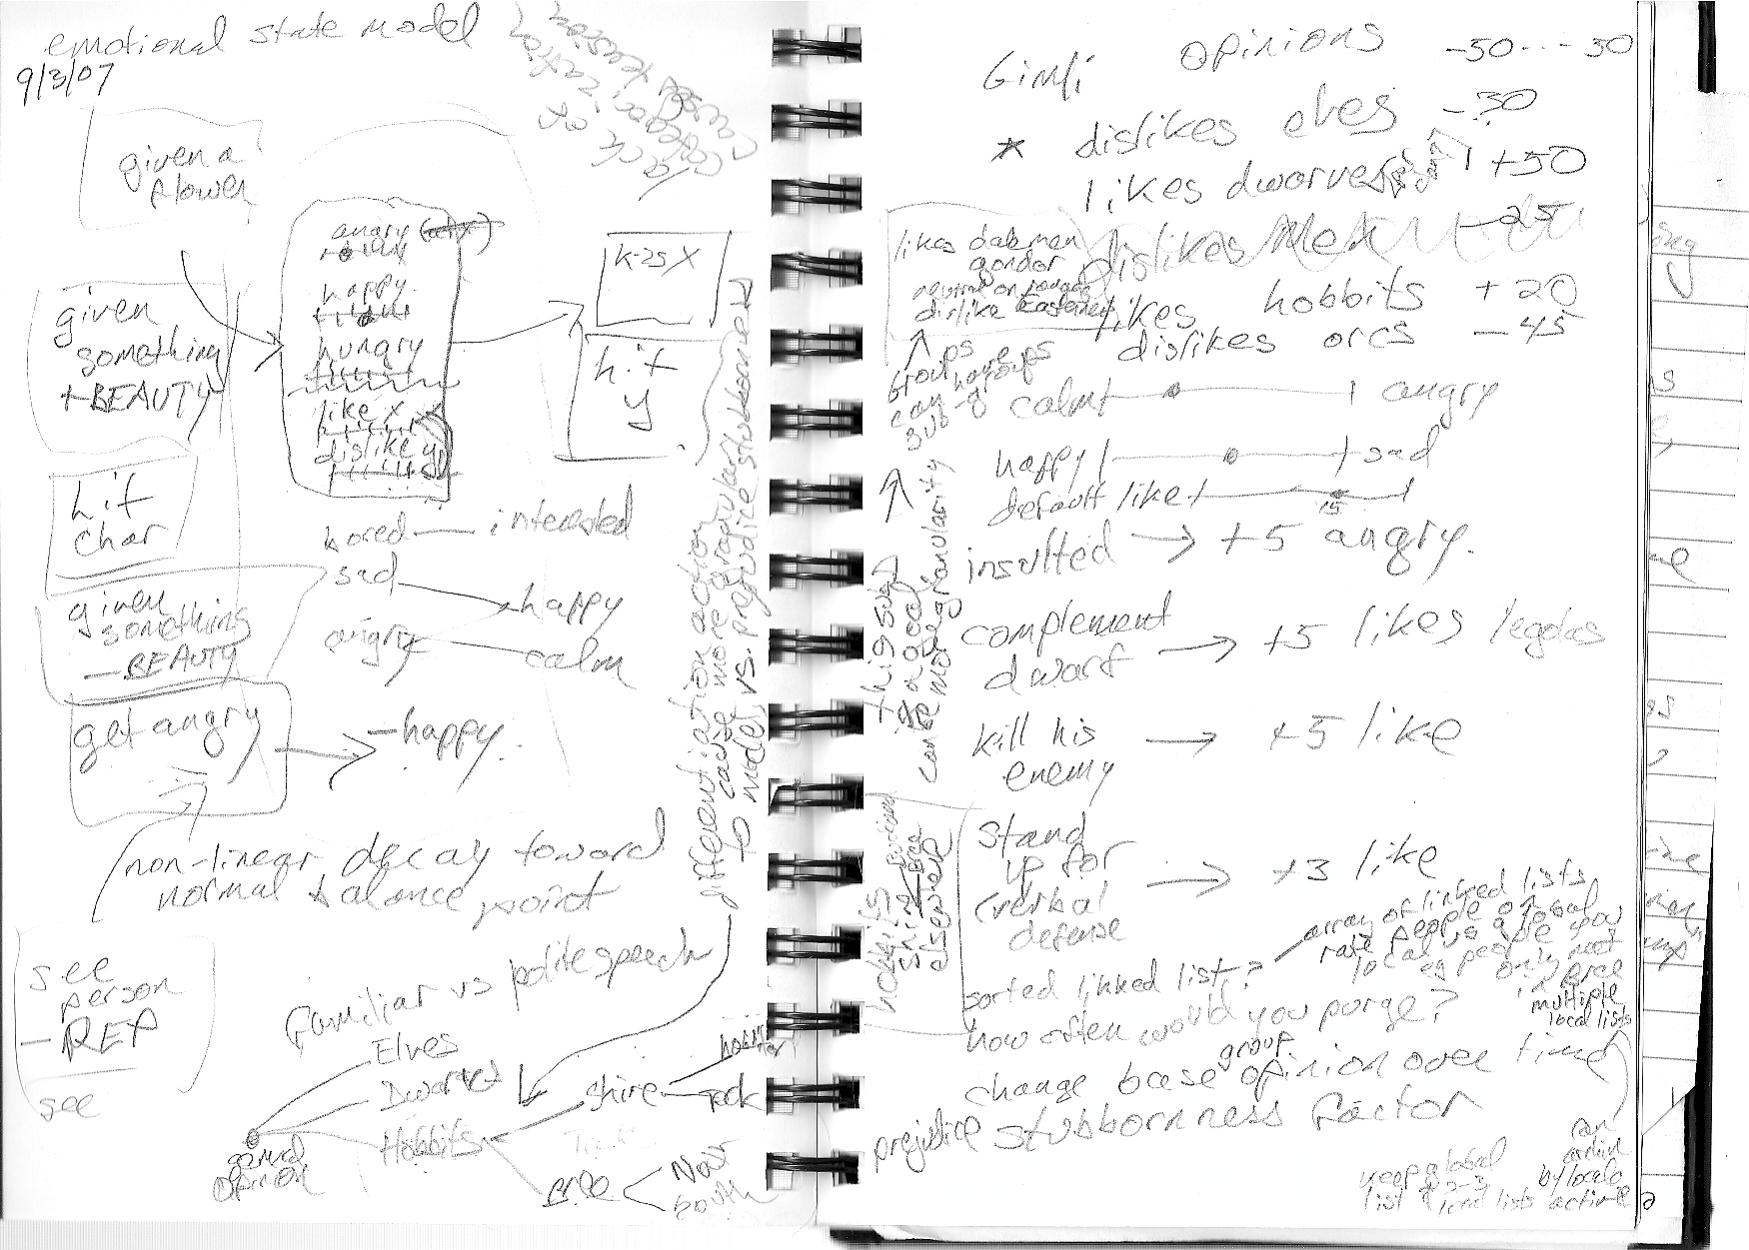 emotional state model
9/3/07
lack of
categorization
causes tension
given a
flower
given
something
+BEAUTY
hit
char
given
something
- BEAUTY
get angry
- happy.
angry
happy
hungry
like x
dislike y
hit
y
bored — interested
sad
happy
angry
calm
non-linear decay toward
normal balance point
see
person
- REP
see
familiar vs polite speech
Elves
Dwarves
Hobbits
opinion
shire
took
Bree
North
South
differentiation action
cause more granular
to model vs. prejudice stubbornness
Gimli
opinions -50 . . . 50
* dislikes elves -30
likes dwarves +50
dislikes Men -25
likes hobbits +20
dislikes orcs -45
likes dale men
gondor
neutral on
dislike
groups
can have
sub-groups
calm angry
happy sad
default like
15
insulted → +5 angry.
complement
dwarf → +5 likes legolas
kill his
enemy → +5 like
stand
up for
(verbal
defense → +3 like
can be more granularity
hobbits
shire
Bree
elsewhere
sorted linked list?
array of linked lists
multiple
local lists
how often would you purge?
change base group opinion over time
prejudice stubbornness factor
keep global
list + 2-3
local lists active